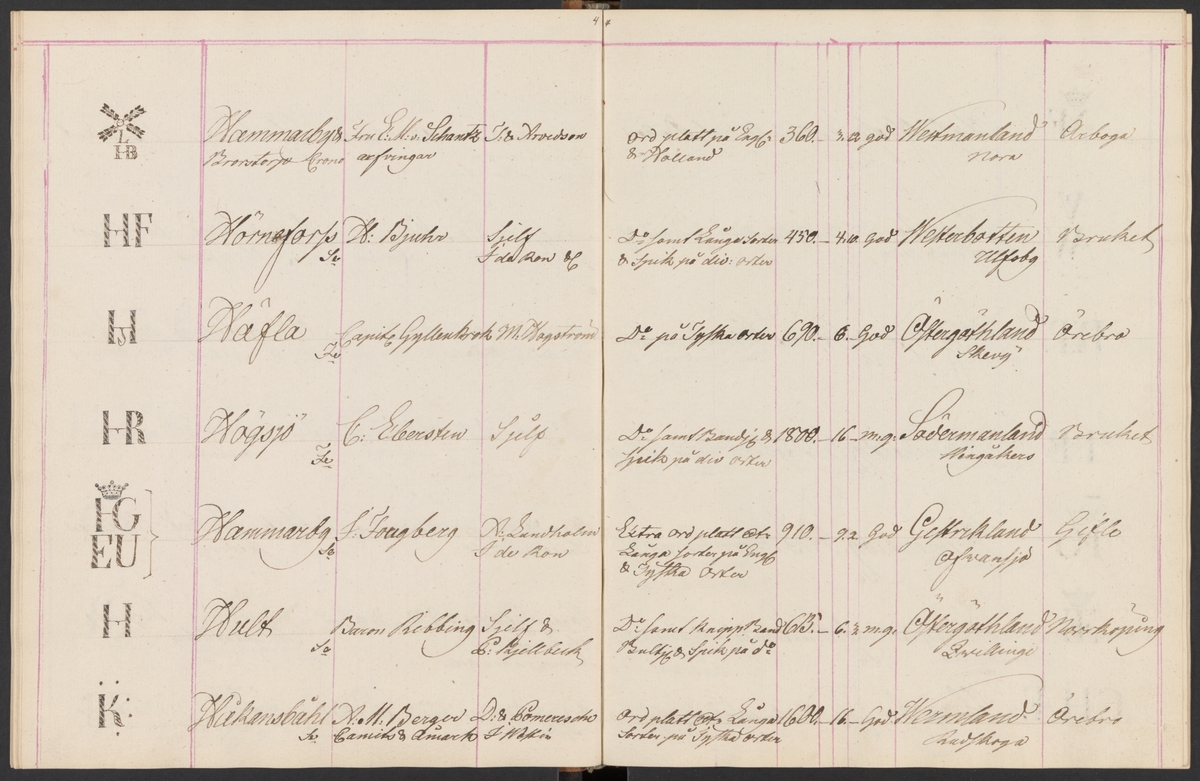 4
L
HB
Hammarby &
Brorstorp
Fru E. M. v. Schantz
arfvingar
J. & Arvedson
ord platt på Engl:
& Holland
360. – 2.12 god
Westmanland
Nora
Arboga
HF
Hörneforss
Sr
N: Bjuhr
Sjelf
J de Ron & C
Do samt Långa Sorter
& Spik på div: orter
450. – 4.10. God
Westerbotten
Bruket
H
Häfla
Capit: Gyllenkrok
M. Hagström
Do på Tyska orter
690. – 6. God
Östergöthland
Skevj
Örebro
HR
Högsjö
C: Ebersten
Sjelf
Do samt Bandj: &
spik på div orter
1800. – 16 – m.g:
Södermanland
Wingåkers
Bruket
HG
EU
Hammarby
Sr
A. Lundholm
J de Ron
Extra ord platt &
Långa sorter på Engl
& Tyska Orter
910. – 9.2 God
Gestrikland
Ofvansjö
Gefle
H
Hult
Sr
Baron Ribbing
Sjelf &
Do samt Knipp Band
Bultj: & Spik på do
615. – 6.2 m.g:
Östergöthland
Qvillinge
Norrköping
K
Håkansbohl
Sr
A. M. Berger
Camitz & Åmark
D: & Pomeresche
ord platt & Långa
Sorter på Tyska orter
1600. – 16 – God
Wermland
Karlskoga
Örebro